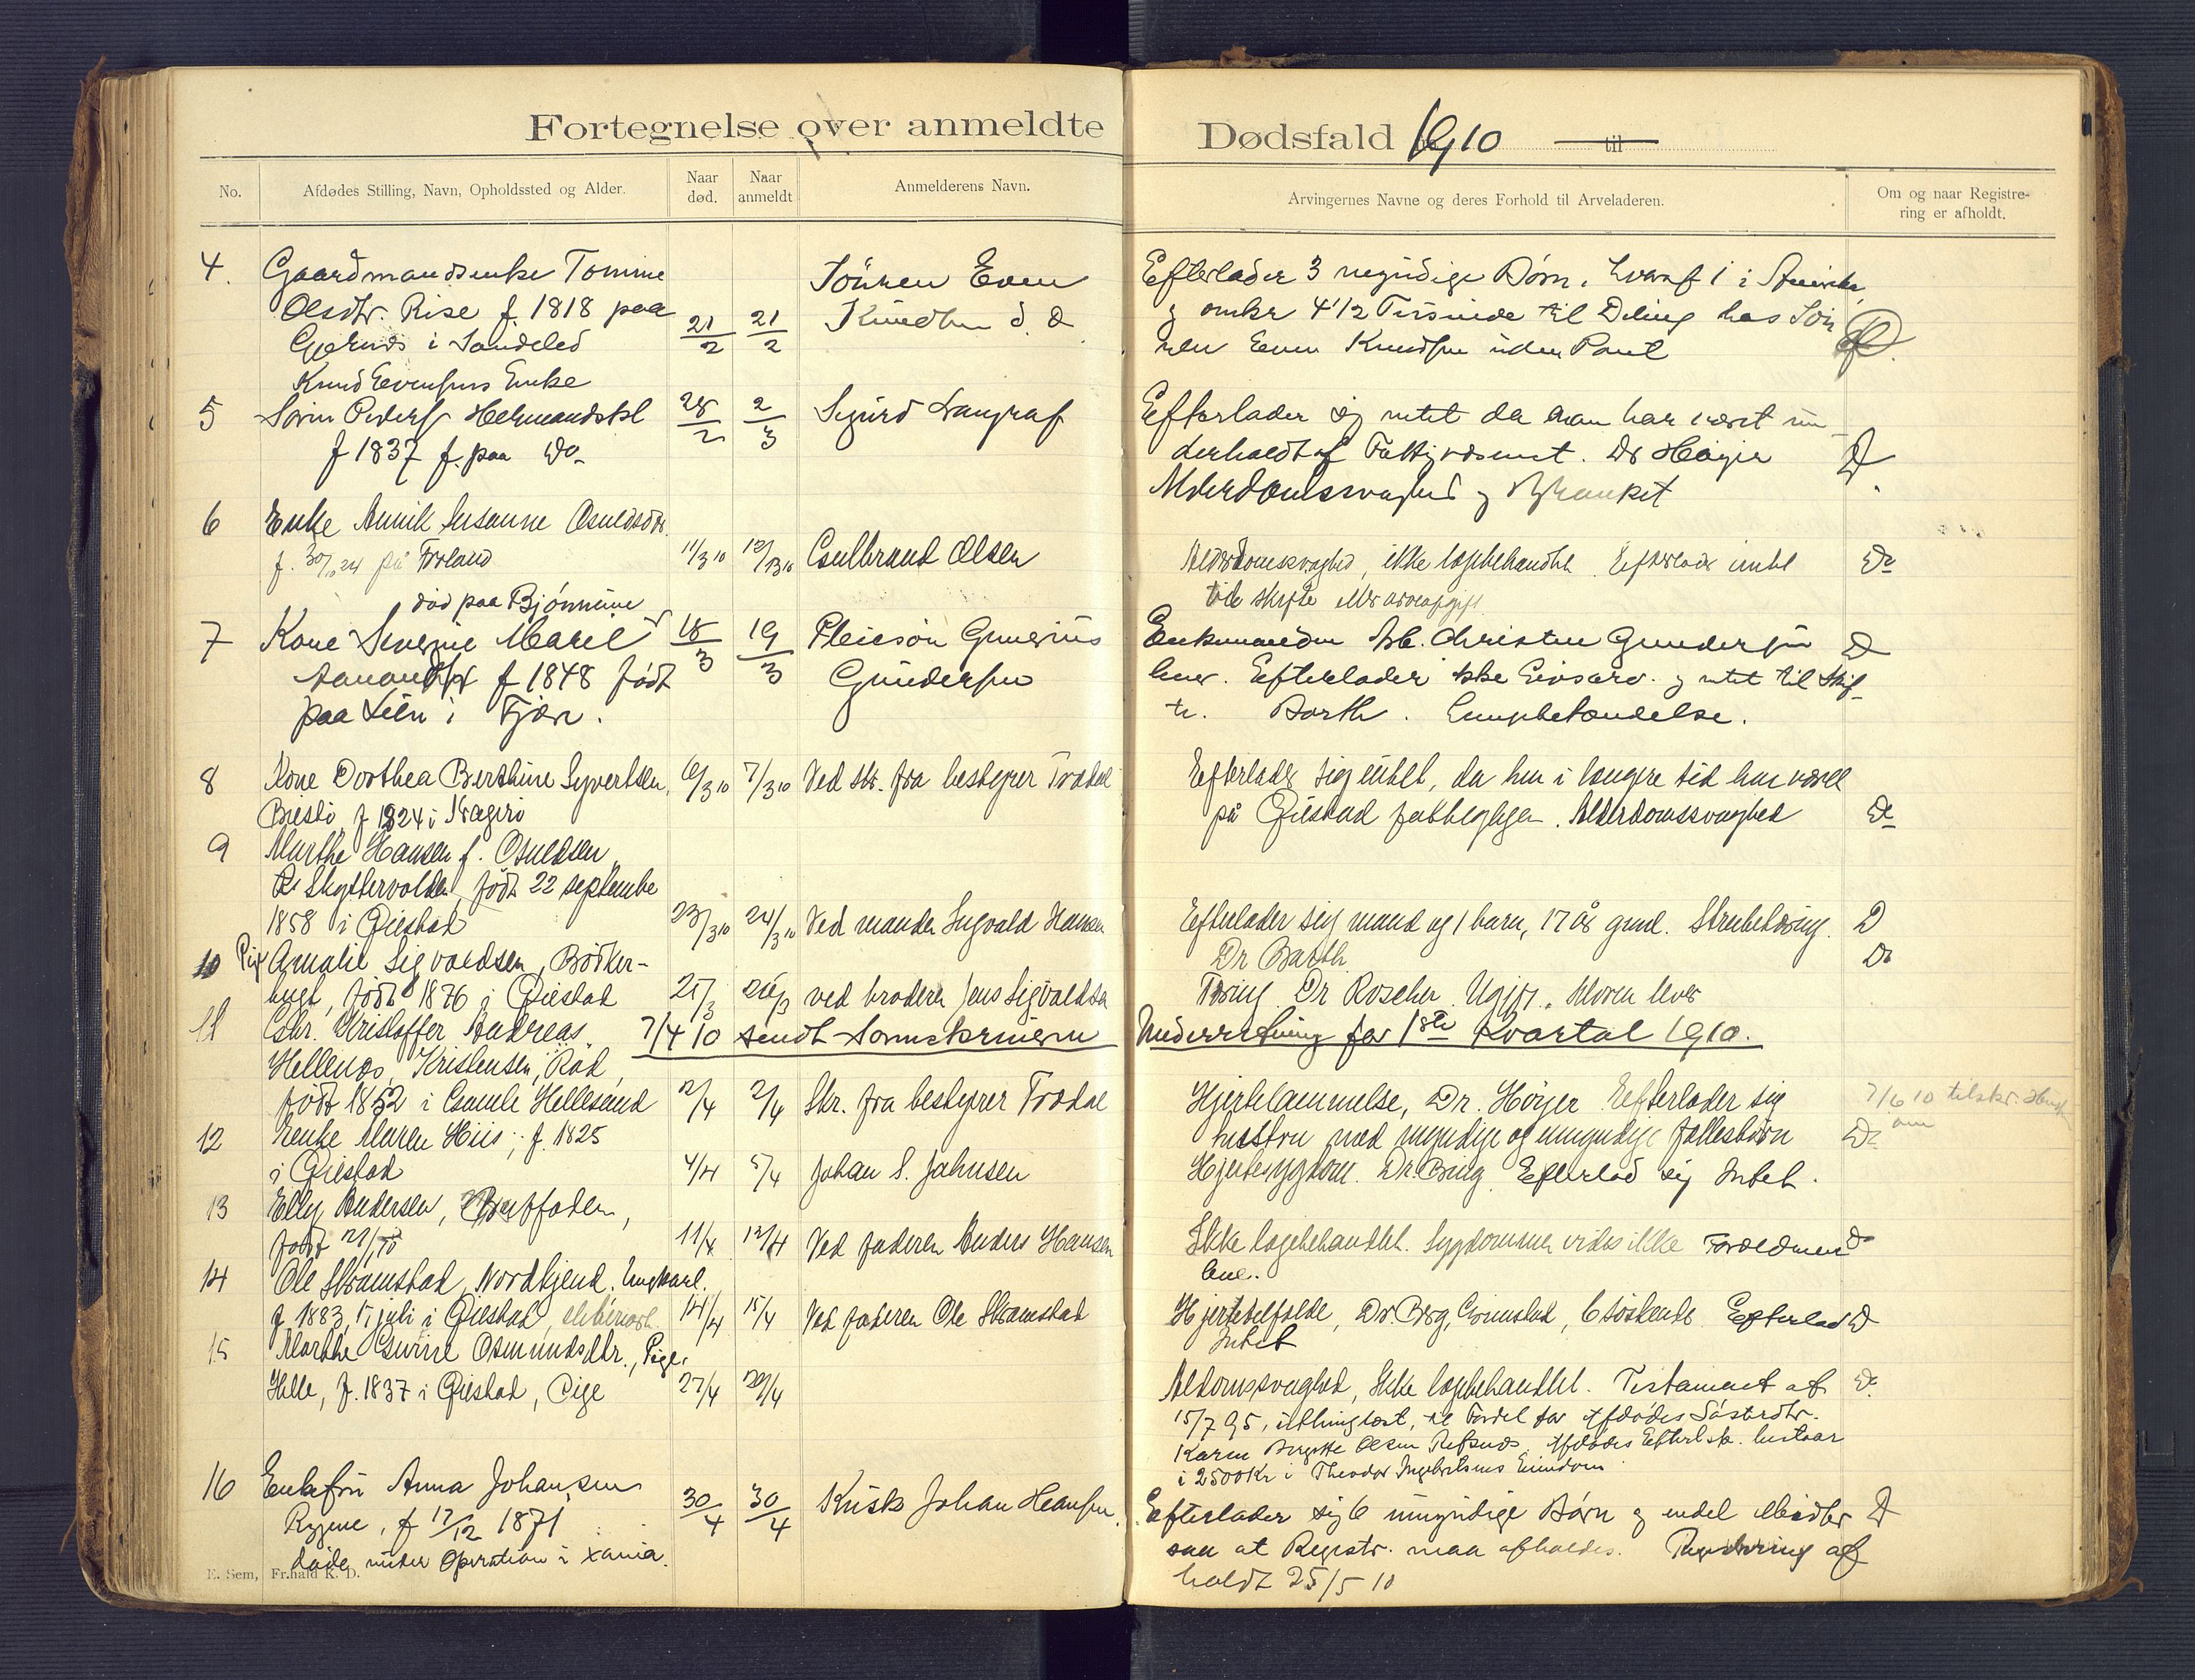 Fortegnelse over anmeldte Dødsfald 1910 til
No.
Afdødes Stilling, Navn, Opholdssted og Alder.
Naar død.
Naar anmeldt
Anmelderens Navn.
Arvingernes Navne og deres Forhold til Arveladeren.
Om og naar Registre-
ring er afholdt.
4. Gaardmandsenke Tomine
Olsdtr. Rise f. 1818 paa
i Sandeled
Knud Evensens Enke
21/2 21/2
Sönnen Even
Knudsen d. o
Efterlader 3 myndige Børn, hvoraf 1 i
og omkr 4 1/2 Tusinde til Deling hos Søn
nen Even Knudsen uden Pant
5 Sørin Peders
f 1837 f. paa Do.
28/2 2/3
Sigurd Langraf
Efterlader sig intet da han har været un
derholdt af Fattigvæsenet. Dr Høyer
Alderdomssvaghed og
6 Enke Annik Susanne Osuldsdtr.
f. 30/10 24 på Froland
11/3 10 12/3 10
Gulbrand Olsen
Alderdomssvaghed, ikke lægebehandlet. Efterlader intet
til skifte eller arveafgift
død paa Bjønnene
7 Kone Severine Marie
f 1848 født
paa Lien i Fjære.
18/3 19/3
Pleiesøn Gunerius
Gundersen
Enkemanden Christen Gundersen
lever. Efterlader ikke Livsarv. og intet til Skif-
te. Barth. Lungebetændelse.
8 Kone Dorthea Berthine Syvertsen,
f 1824 i Kragerø
6/3 10 7/3 10 Ved skr. fra bestyrer Trædal
Efterlader sig intet, da hun i længere tid har været
på Øiestad fattiggaard. Alderdomssvaghed
Do
9 Marthe Hansen f. Osuldsen,
Skyttervolden, født 22 september
1858 i Øiestad
23/3 10 24/3 10 Ved manden Sigvald Hansen
Efterlader sig mand og 1 barn, 17 år gml. Strubetæring.
Dr Barth
10 Pige Amalie Sigvaldsen, Bødker-
født 1876 i Øiestad
25/3 26/3 ved broderen Jens Sigvaldsen
Tæring Dr Roscher. Ugift. Moren lever
7/4 10 sendt Sorenskriveren Underretning for 1ste Kvartal 1910.
11 Gbr. Kristoffer Andreas
Hellenæs Kristensen, Rød,
født 1852 i Gamle Hellesund
2/4 2/4 Skr. fra bestyrer Trædal
Hjertelammelse, Dr. Høyer. Efterlader sig
hustru med myndige og umyndige fællesbørn
7/6 10 tilskr.
om
12 Enke Maren Hiis, f. 1825
i Øiestad
4/4 5/4 Johan S. Jahnsen
Hjertesygdom. Dr. Berg. Efterlod sig Intet.
13 Elly Andersen,
født
11/4 12/4 Ved faderen Anders Hansen
Ikke lægebehandlet. Sygdommen vides ikke Forældrene
leve.
14 Ole Strømstad, Nordhjend. Ungkarl.
f 1883, 17 juli i Øiestad,
14/4 15/4 Ved faderen Ole Strømstad
Hjertetilfælde, Dr. Berg, Grimstad, 6 søskende Efterlod
Intet
15 Marthe Osmundsdtr., Pige,
Helle, f. 1837 i Øiestad, Pige
27/4 29/4
Aldomssvaghed, Ikke lægebehandlet. Testament af
15/7 95, uthinglæst, til Fordel for Afdødes Søsterdtr.
Karen Birgitte Olsen Refsnes. Afdødes Efterlsk. bestaar
i 2500 Kr i Theodor Ingebretsens Eiendom
16 Enkefru Anna Johansen
Rygene, f 12/12 1871
døde under Operation i Xania.
30/4 30/4
Johan Hansen
Efterlader sig 6 umyndige Børn og endel Midler
saa at Registr. maa afholdes. Registrering af
holdt 25/5 10
E. Sem, Fr.hald K. D.